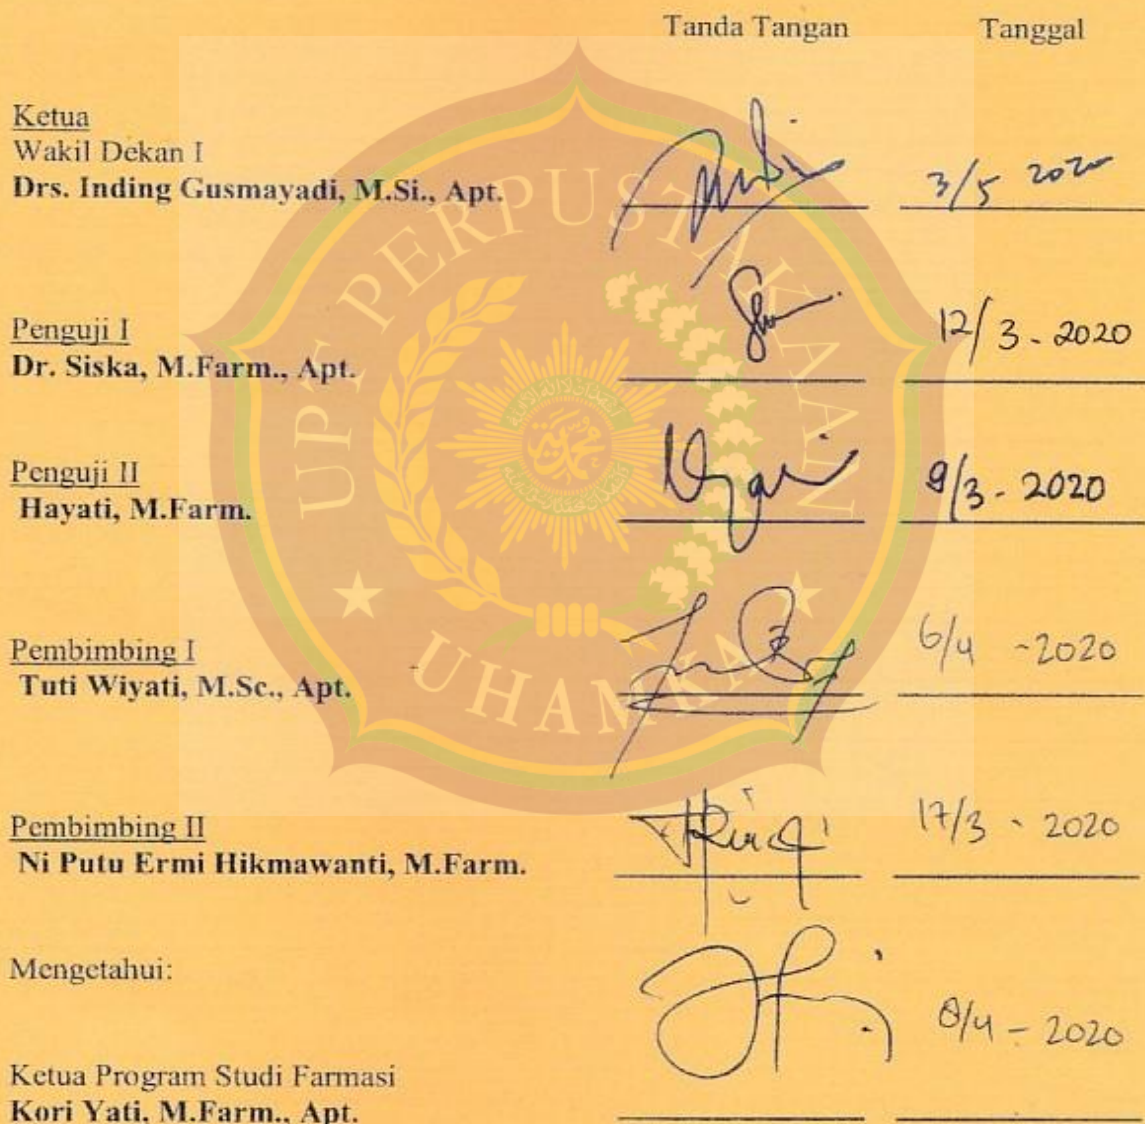 Tanda Tangan Tanggal
Ketua
Wakil Dekan I
Drs. Inding Gusmayadi, M.Si., Apt.
3/5 2020
Penguji I
Dr. Siska, M.Farm., Apt.
12/3 - 2020
Penguji II
Hayati, M.Farm.
9/3 - 2020
Pembimbing I
Tuti Wiyati, M.Sc., Apt.
6/4 - 2020
Pembimbing II
Ni Putu Ermi Hikmawanti, M.Farm.
17/3 - 2020
Mengetahui:
8/4 - 2020
Ketua Program Studi Farmasi
Kori Yati, M.Farm., Apt.
UPT PERPUSTAKAAN
UHAMKA